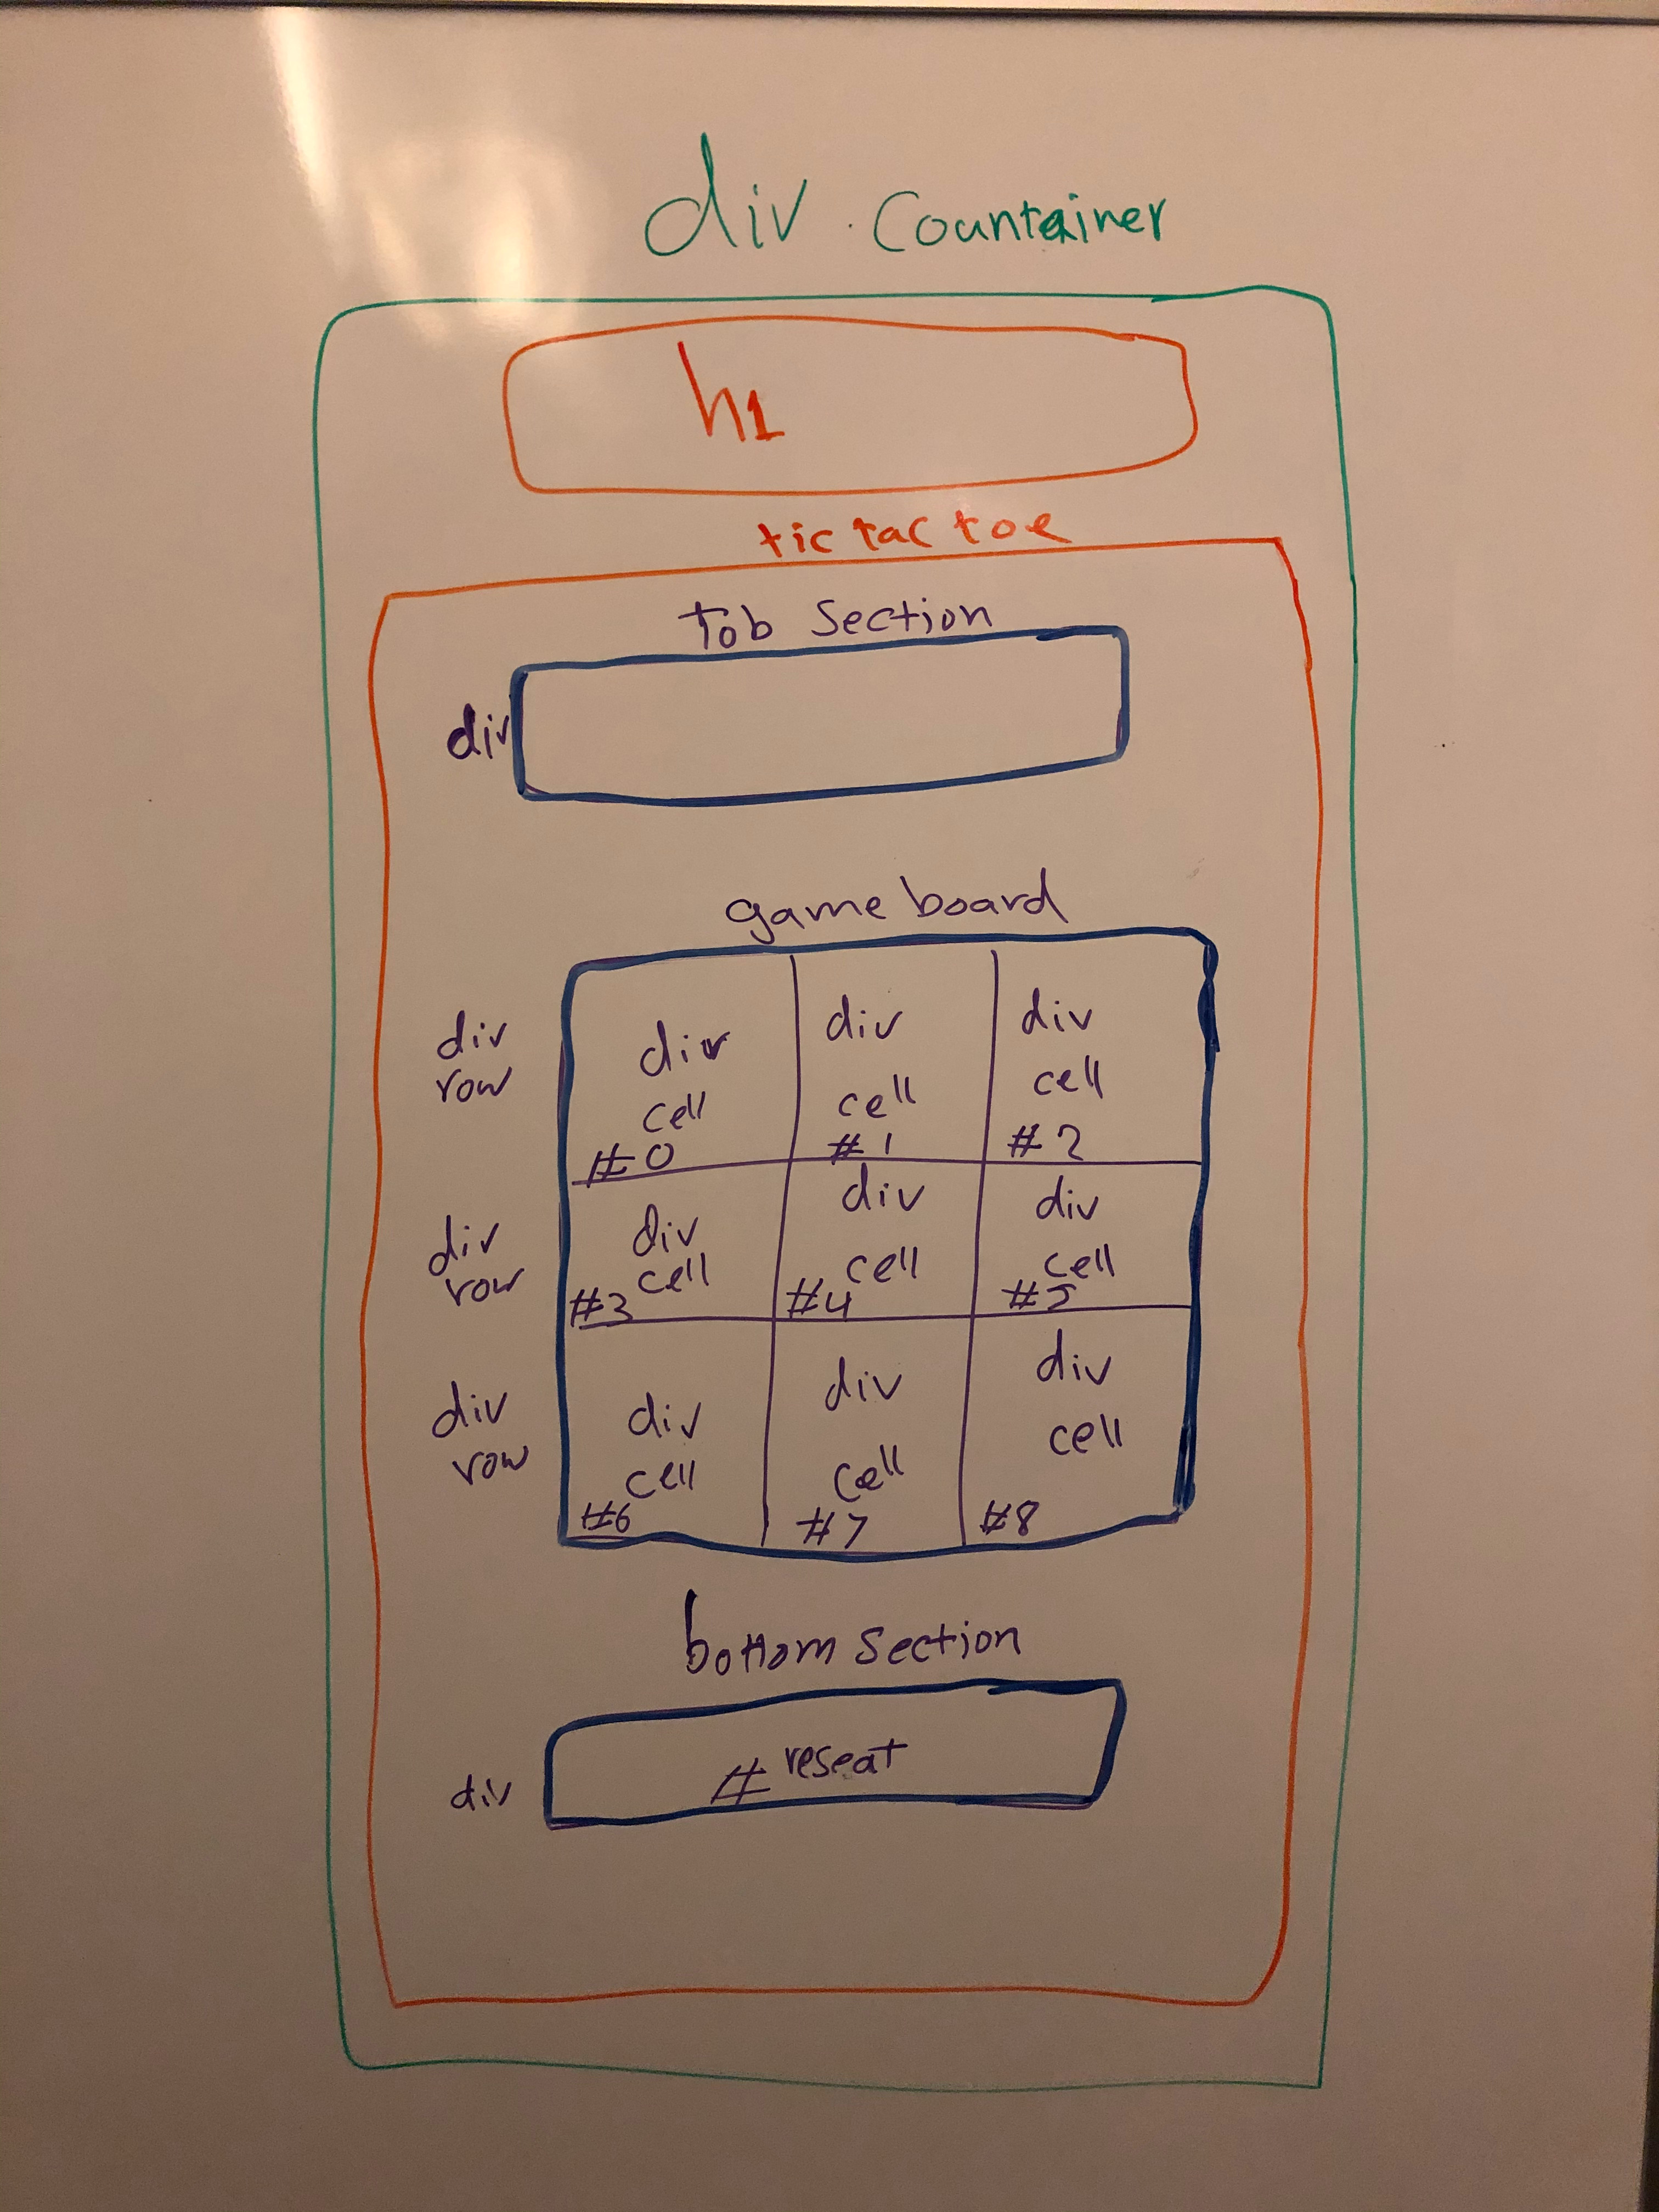 div . Countainer
h1
tic tac toe
Tob Section
div
game board
div
row
div
cell
#0
div
cell
#1
div
cell
#2
div
row
div
cell
#3
div
cell
#4
div
cell
#5
div
row
div
cell
#6
div
cell
#7
div
cell
#8
bottom section
div
# reseat